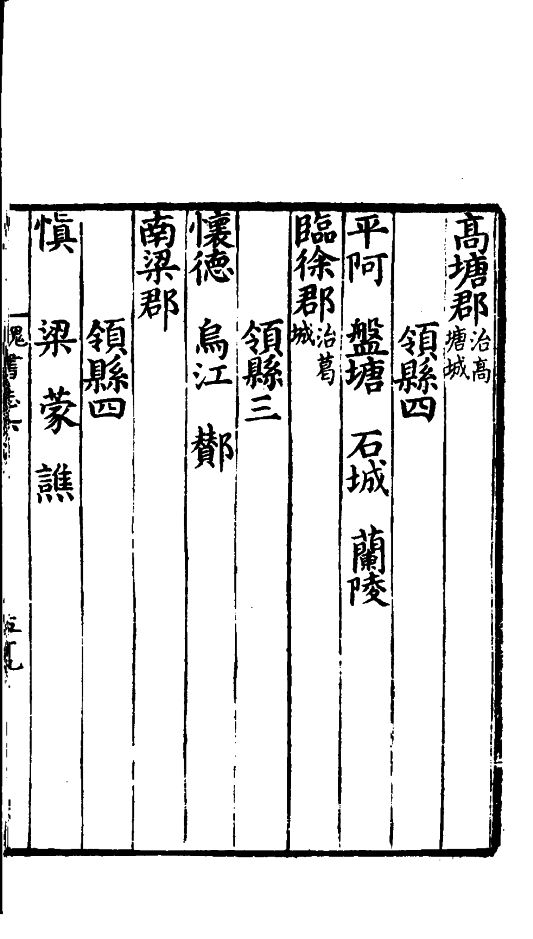 高塘郡治高塘城
領縣四
平阿　盤塘　石城　蘭陵
臨徐郡治葛城
領縣三
懷德　烏江　酇
南梁郡
領縣四
慎　梁　蒙　譙
魏書志六